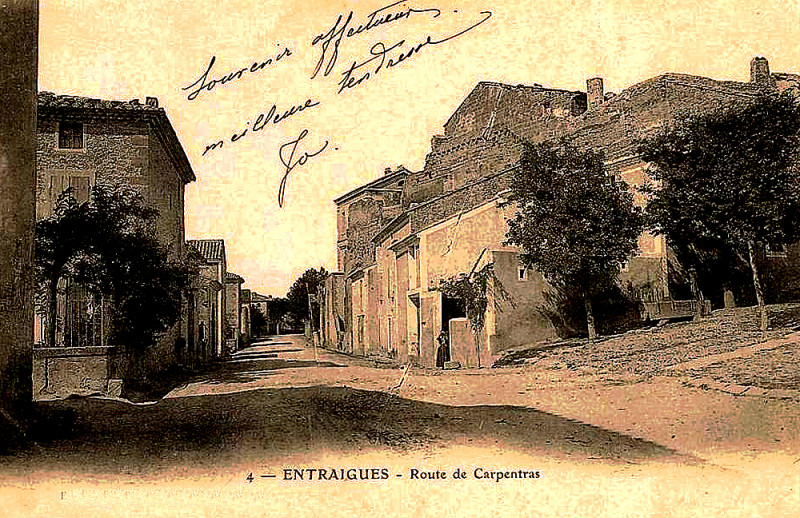 Souvenir affectueux.
meilleure tendresse
Jo.
4 — ENTRAIGUES - Route de Carpentras